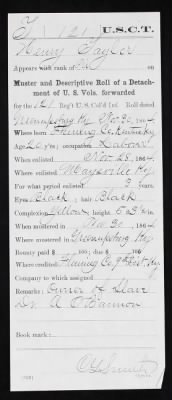 T | 121 | U.S.C.T.
Henry Taylor
Appears with rank of
Muster and Descriptive Roll of a Detach-
ment of U. S. Vols. forwarded
for the 121 Reg't U.S. Col'd Inf. Roll dated
Greensburg Ky Nov 30, 1864
Where born Fleming Co. Kentucky
Age 20 y'rs; occupation Laborer
When enlisted Nov 25, 1864
Where enlisted Maysville Ky
For what period enlisted 3 years.
Eyes Black; hair Black
Complexion Yellow; height 5 ft. in.
When mustered in Nov 30, 1864
Where mustered in Greensburg Ky
Bounty paid $ 100; due $ 100
Where credited Fleming Co. 9th Dist. Ky.
Company to which assigned
Remarks: Owner of Slave
Dr. A. O'Bannon
Book mark: